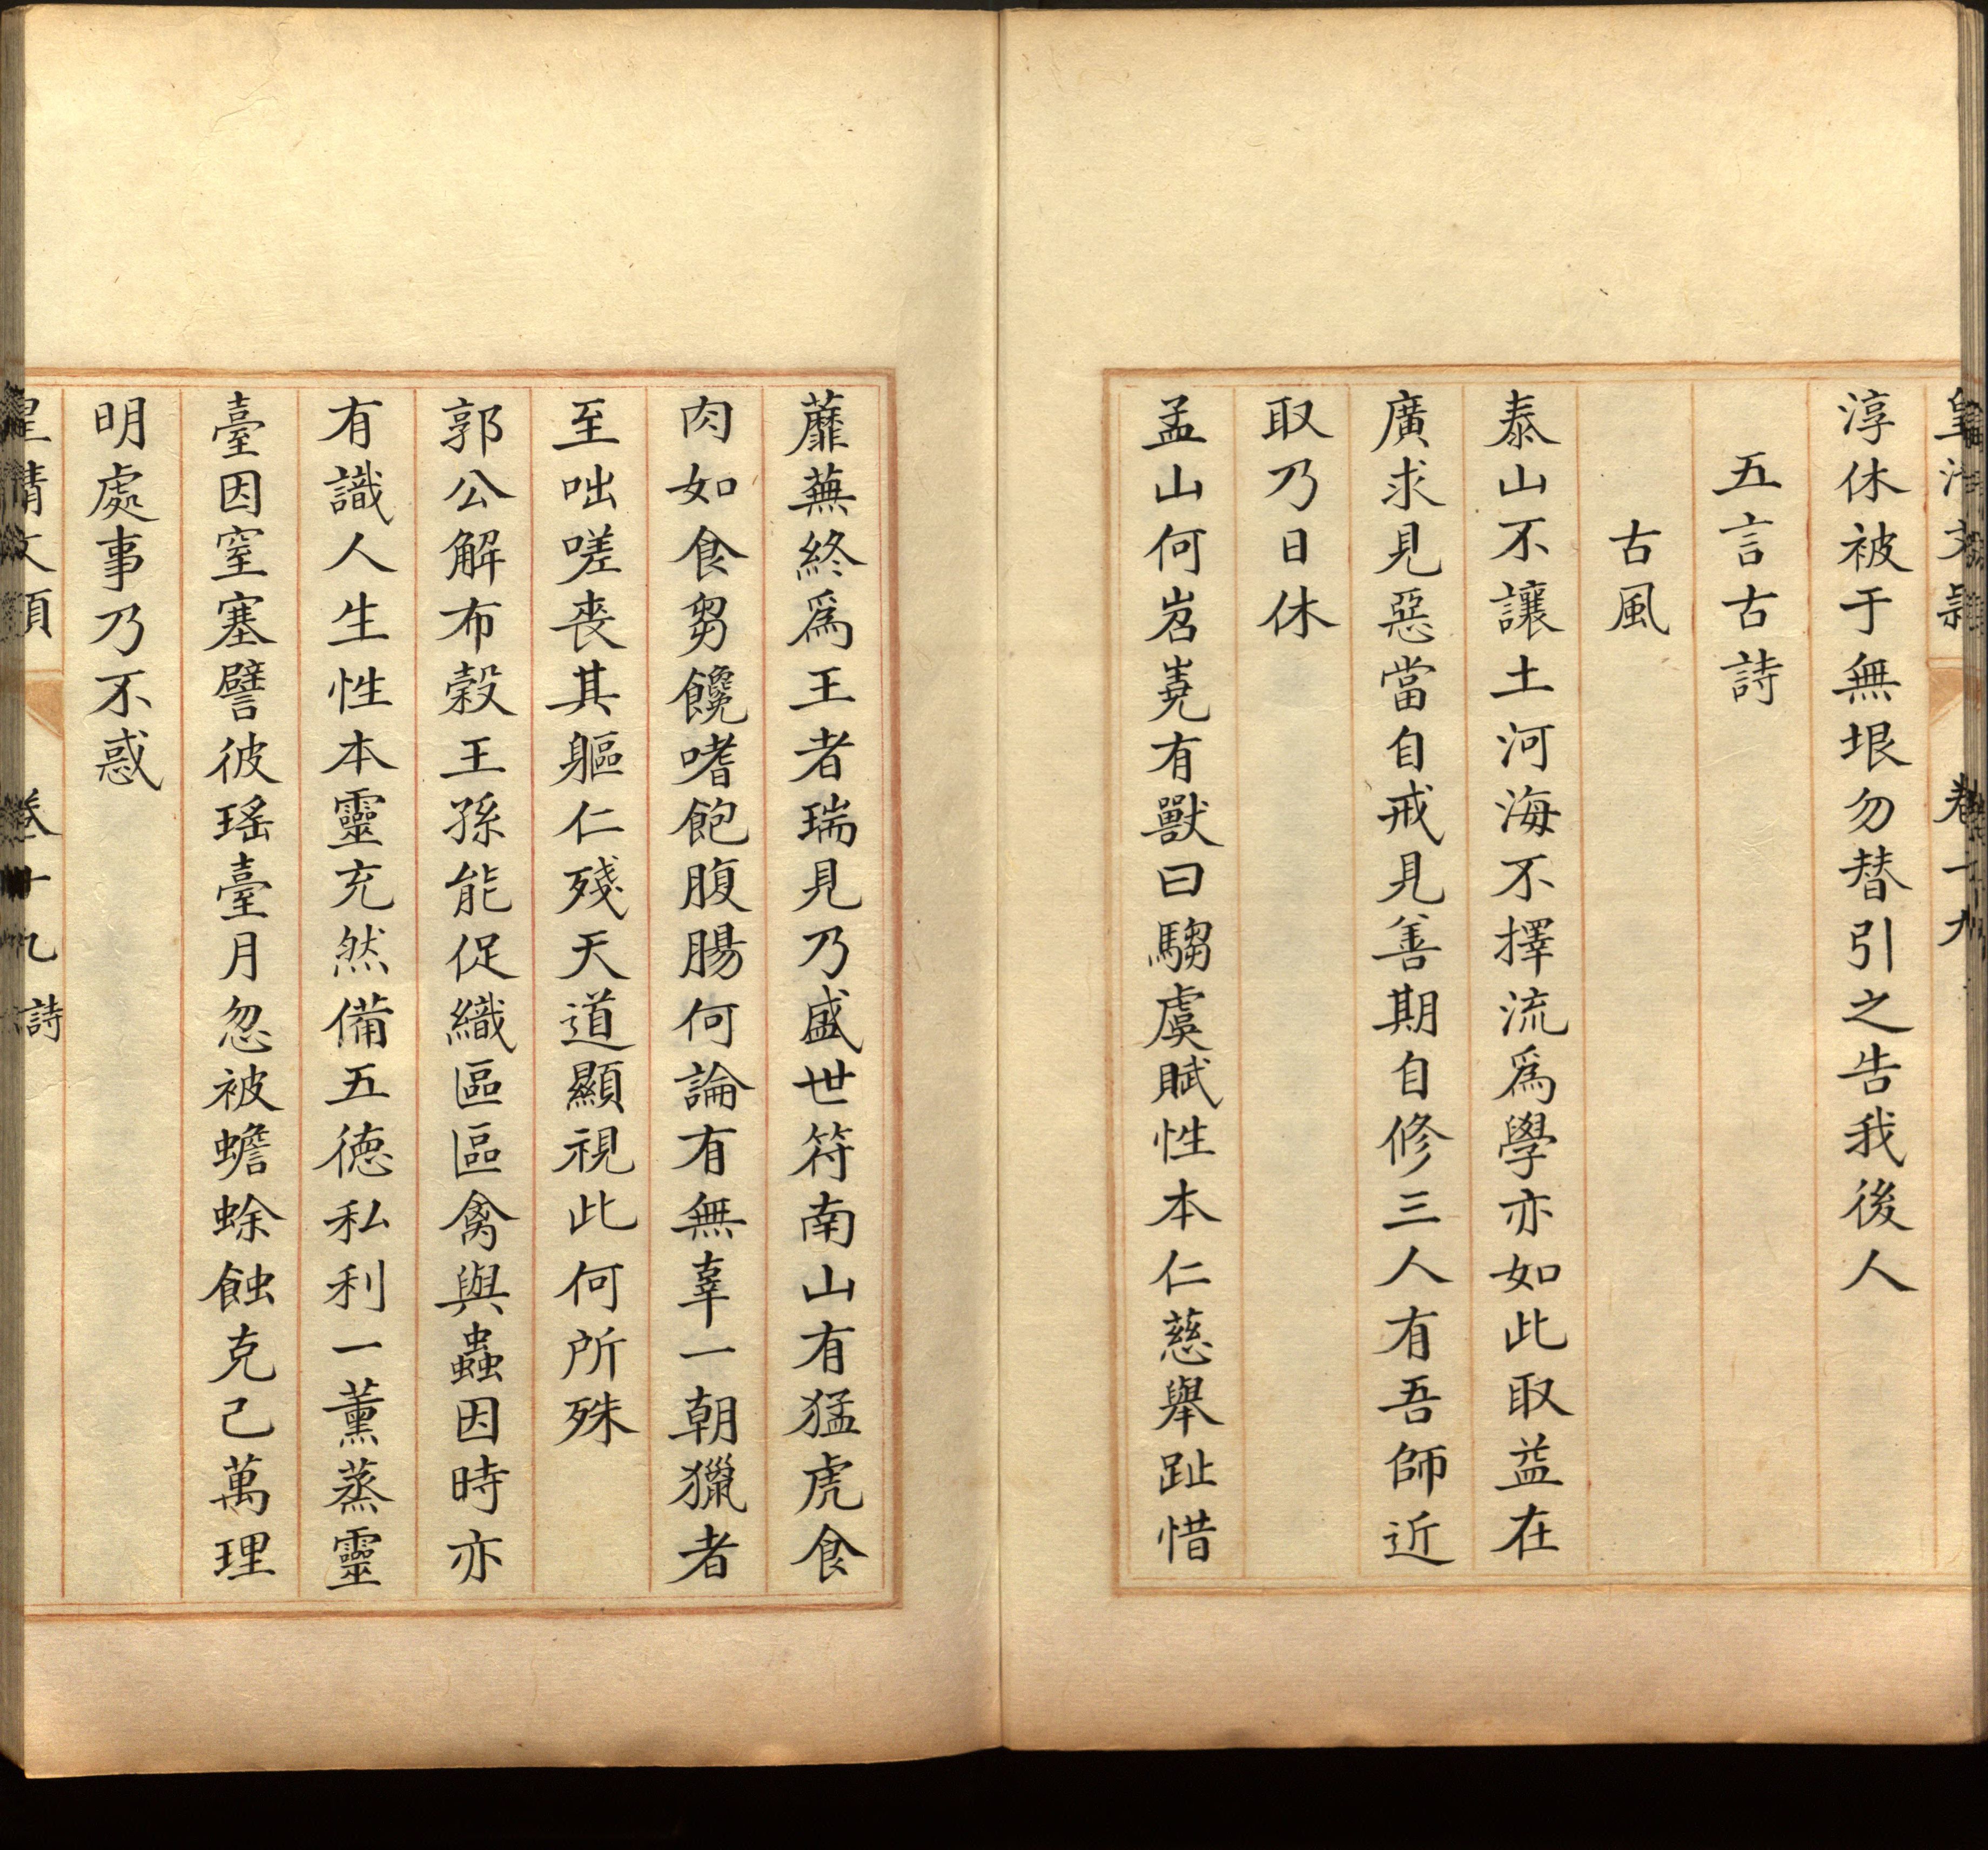 皇清文穎 卷十九
淳休被于無垠勿替引之告我後人
五言古詩
古風
泰山不讓土河海不擇流爲學亦如此取益在
廣求見惡當自戒見善期自修三人有吾師近
取乃日休
孟山何岧嶤有獸曰騶虞賦性本仁慈舉趾惜
蘼蕪終爲王者瑞見乃盛世符南山有猛虎食
肉如食芻饞嗜飽腹腸何論有無辜一朝獵者
至咄嗟喪其軀仁殘天道顯視此何所殊
郭公解布穀王孫能促織區區禽與蟲因時亦
有識人生性本靈充然備五德私利一薰蒸靈
臺因窒塞譬彼瑤臺月忽被蟾蜍蝕克己萬理
明處事乃不惑
皇清文穎 卷十九 詩